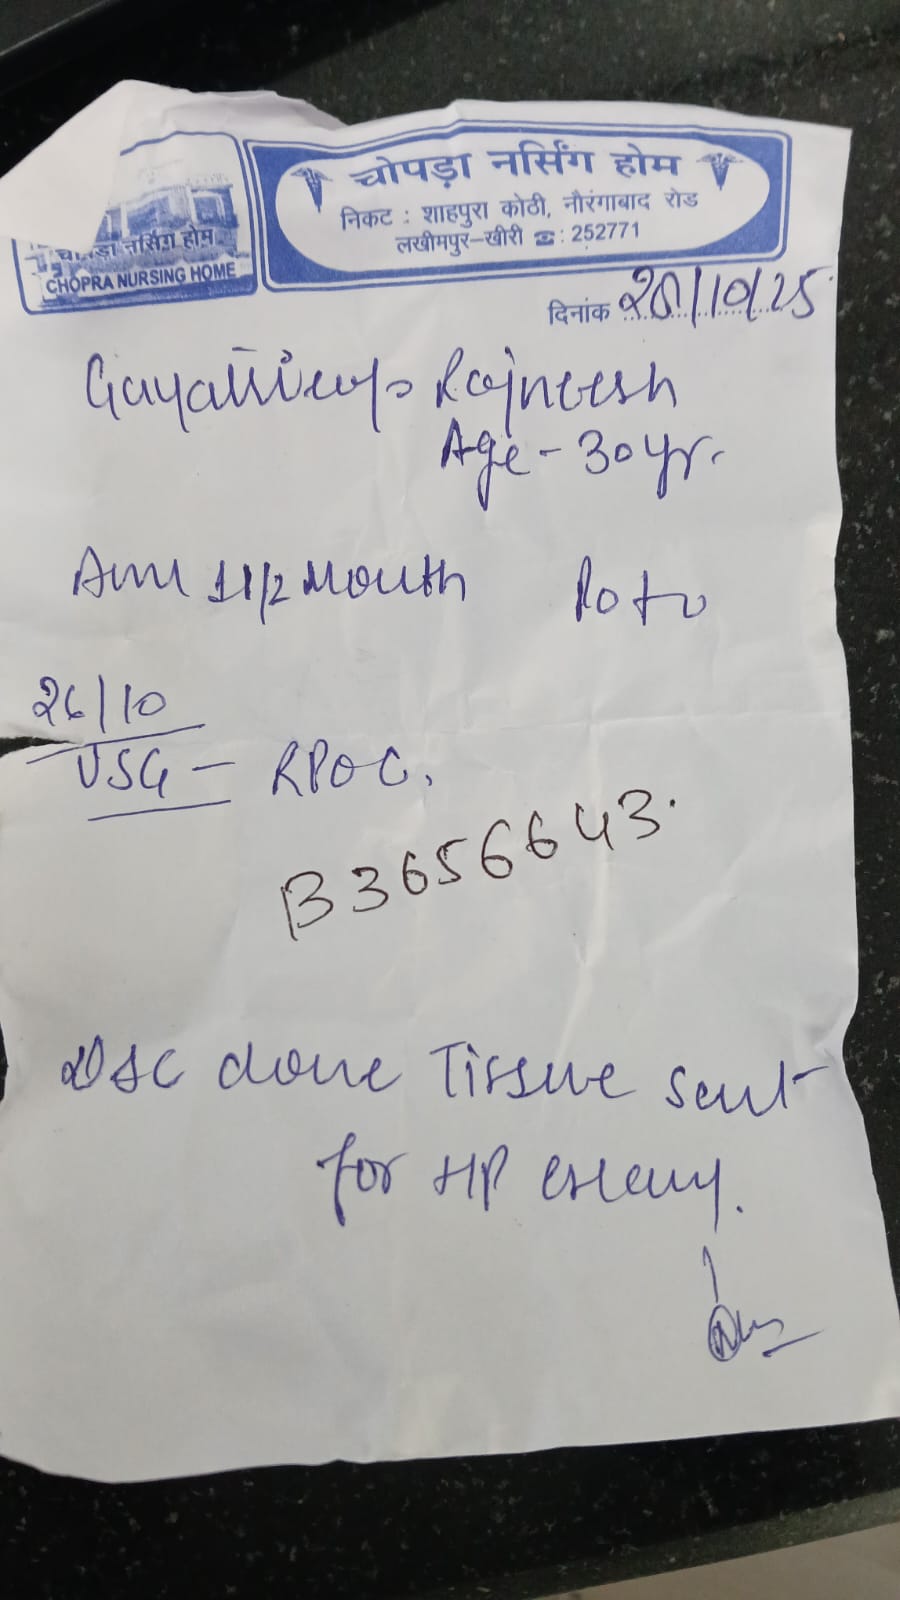 चोपड़ा नर्सिंग होम
निकट : शाहपुरा कोठी, नौरंगाबाद रोड
लखीमपुर-खीरी ☎: 252771
नर्सिंग होम
CHOPRA NURSING HOME
दिनांक 28/10/25
Gayatri w/o Rajneesh
Age - 30 yr.
1 1/2 Month
26/10
USG - RPOC.
B3656643.
D&C done Tissue sent
for HP